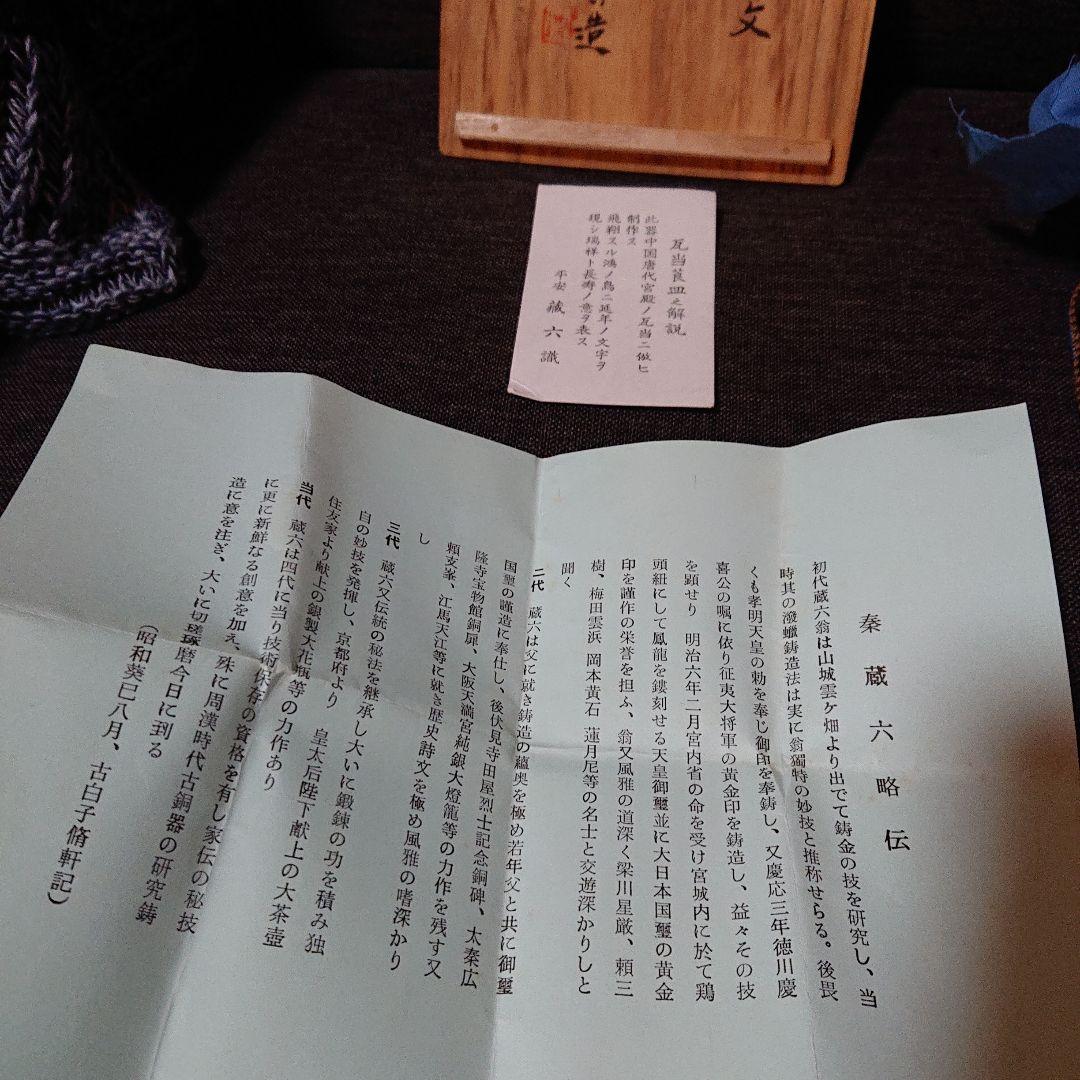 文
造
瓦当莨皿之解説
此器中国唐代宮殿ノ瓦当ニ倣ヒ
制作ス
飛翔スル鴻ノ鳥ニ延年ノ文字ヲ
現シ瑞祥ト長寿ノ意ヲ表ス
平安 蔵六識
秦蔵六略伝
初代蔵六翁は山城雲ケ畑より出でて鋳金の技を研究し、当
時其の潑蠟鋳造法は実に翁獨特の妙技と推称せらる。後畏
くも孝明天皇の勅を奉じ御印を奉鋳し、又慶応三年徳川慶
喜公の嘱に依り征夷大将軍の黄金印を鋳造し、益々その技
を顕せり 明治六年二月宮内省の命を受け宮城内に於て鶏
頭紐にして鳳龍を鏤刻せる天皇御璽並に大日本国璽の黄金
印を謹作の栄誉を担ふ、翁又風雅の道深く梁川星厳、頼三
樹、梅田雲浜 岡本黄石 蓮月尼等の名士と交遊深かりしと
聞く
二代 蔵六は父に就き鋳造の蘊奥を極め若年父と共に御璽
国璽の謹造に奉仕し、後伏見寺田屋烈士記念銅碑、太秦広
隆寺宝物館銅扉、大阪天満宮純銀大燈籠等の力作を残す又
頼支峯、江馬天江等に就き歴史詩文を極め風雅の嗜深かり
し
三代 蔵六又伝統の秘法を継承し大いに鍛錬の功を積み独
自の妙技を発揮し、京都府より 皇太后陛下献上の大茶壺
住友家より献上の銀製大花瓶等の力作あり
当代 蔵六は四代に当り技術保存の資格を有し家伝の秘技
に更に新鮮なる創意を加え、殊に周漢時代古銅器の研究鋳
造に意を注ぎ、大いに切磋琢磨今日に到る
(昭和葵巳八月、古白子脩軒記)